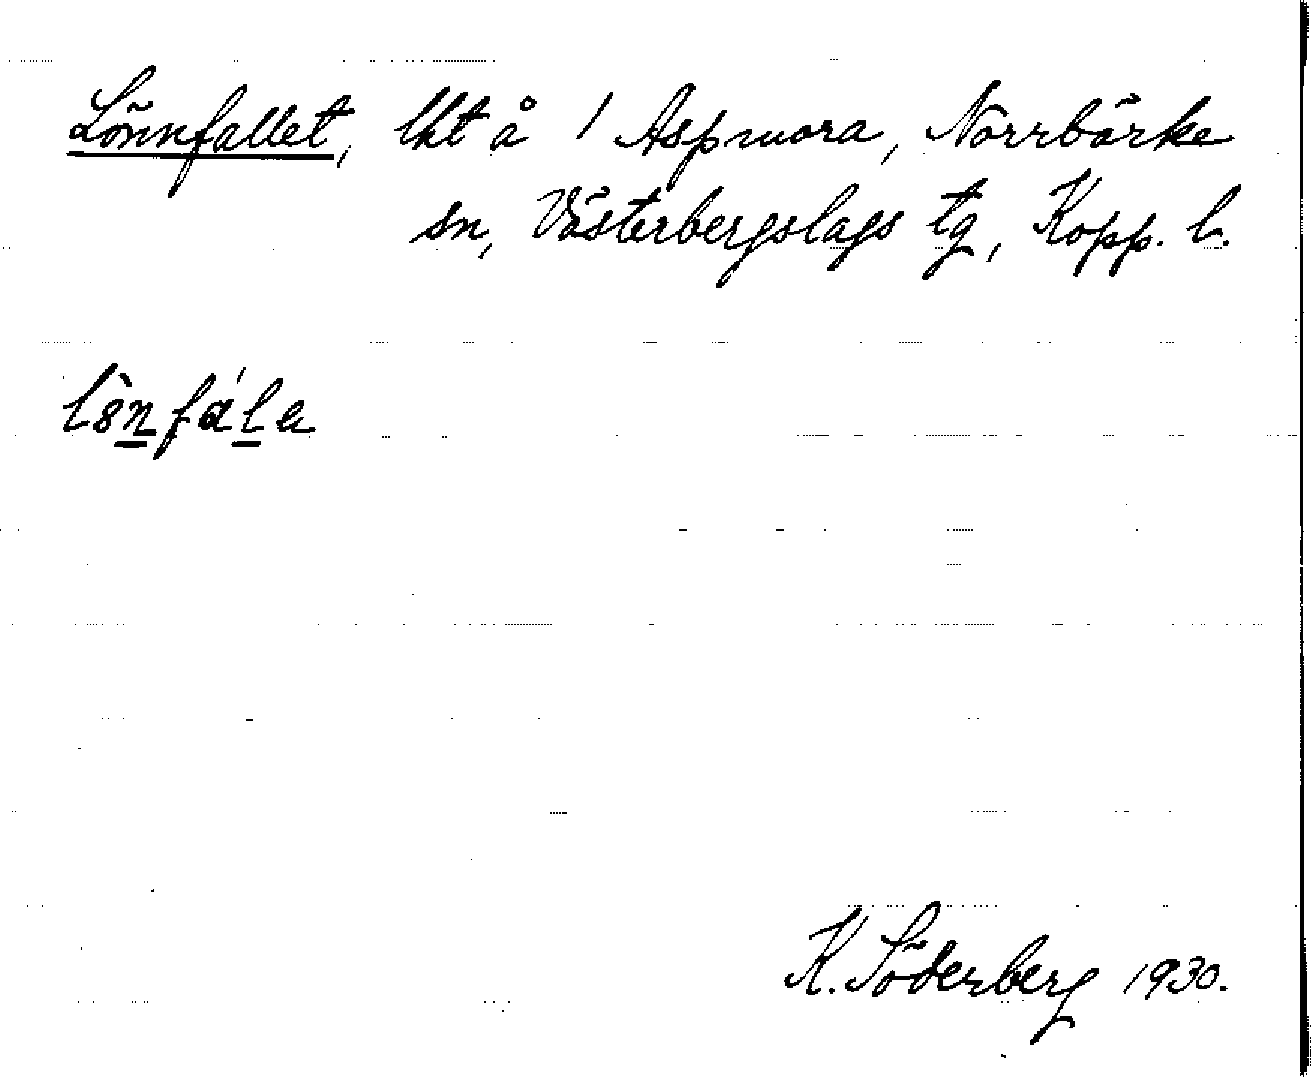 Lönnfallet, lht å 1 Aspmora, Norrbärke
sn, Västerbergslags tg, Kopp. l.
lö̀nfála
K. Söderberg 1930.